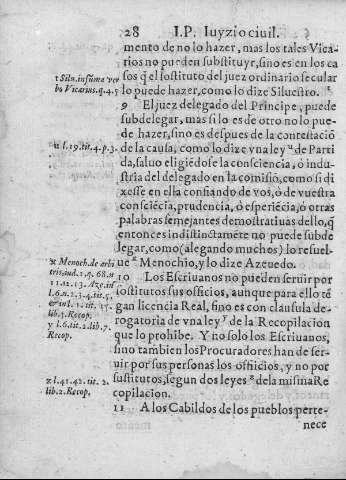 28 I.P. Iuyzio ciuil.
mento de no lo hazer, mas los tales Vica-
rios no pueden substituyr, sino es en los ca
sos q̃ el sostituto del juez ordinario secular
lo puede hazer, como lo dize Siluestro. t
t Silu. in suma ver
bo Vicarius. q. 4. 5
9 El juez delegado del Principe, puede
subdelegar, mas si lo es de otro no lo pue-
de hazer, sino es despues de la contestació
de la causa, como lo dize vna ley u de Parti
da, saluo eligiédose la consciencia, ó indu-
stria del delegado en la comisió, como si di
xesse en ella confiando de vos, ó de vuestra
consciécia, prudencia, ó esperiécia, ó otras
palabras semejantes demostratiuas dello, q̃
entonces indistinctaméte no puede subde
legar, como (alegando muchos) lo resuel-
ue x Menochio, y lo dize Azeuedo.
u l. 19. tit. 4. p. 3.
x Menoch. de arbi
tris, lud. 1. q. 68. n
11. 12. 13. Aze. in
l. 6. n. 2. 3. 4. tit. 5.
lib. 3. Recop.
10 Los Escriuanos no pueden seruir por
sostitutos sus officios, aunque para ello té
gan licencia Real, sino es con clausula de-
rogatoria de vna ley y de la Recopilacion
que lo prohibe. Y no solo los Escriuanos,
sino tambien los Procuradores han de ser-
uir por sus personas los officios, y no por
sustitutos, segun dos leyes z de la misma Re
copilacion.
y l. 6. tit. 2. lib. 7.
Recop.
z l. 41. 42. tit. 2.
lib. 2. Recop.
11 A los Cabildos de los pueblos perte-
nece